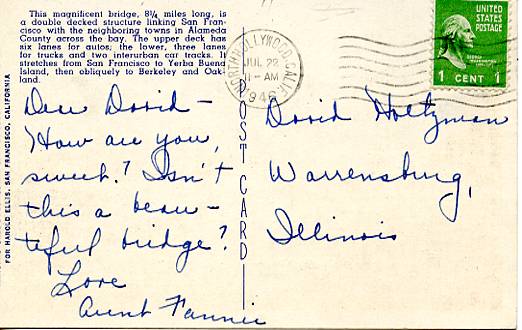 This magnificent bridge, 8¼ miles long, is
a double decked structure linking San Fran-
cisco with the neighboring towns in Alameda
County across the bay. The upper deck has
six lanes for autos; the lower, three lanes
for trucks and two interurban car tracks. It
stretches from San Francisco to Yerba Buena
Island, then obliquely to Berkeley and Oak-
land.
FOR HAROLD ELLIS, SAN FRANCISCO, CALIFORNIA
Dear David -
How are you,
sweet? Isn't
this a beau-
tiful bridge?
Love
Aunt Fannie
POST CARD
NORTH HOLLYWOOD, CALIF.
JUL 22
11-AM
1946
UNITED
STATES
POSTAGE
1 CENT 1
David Holtzman
Warrensburg,
Illinois